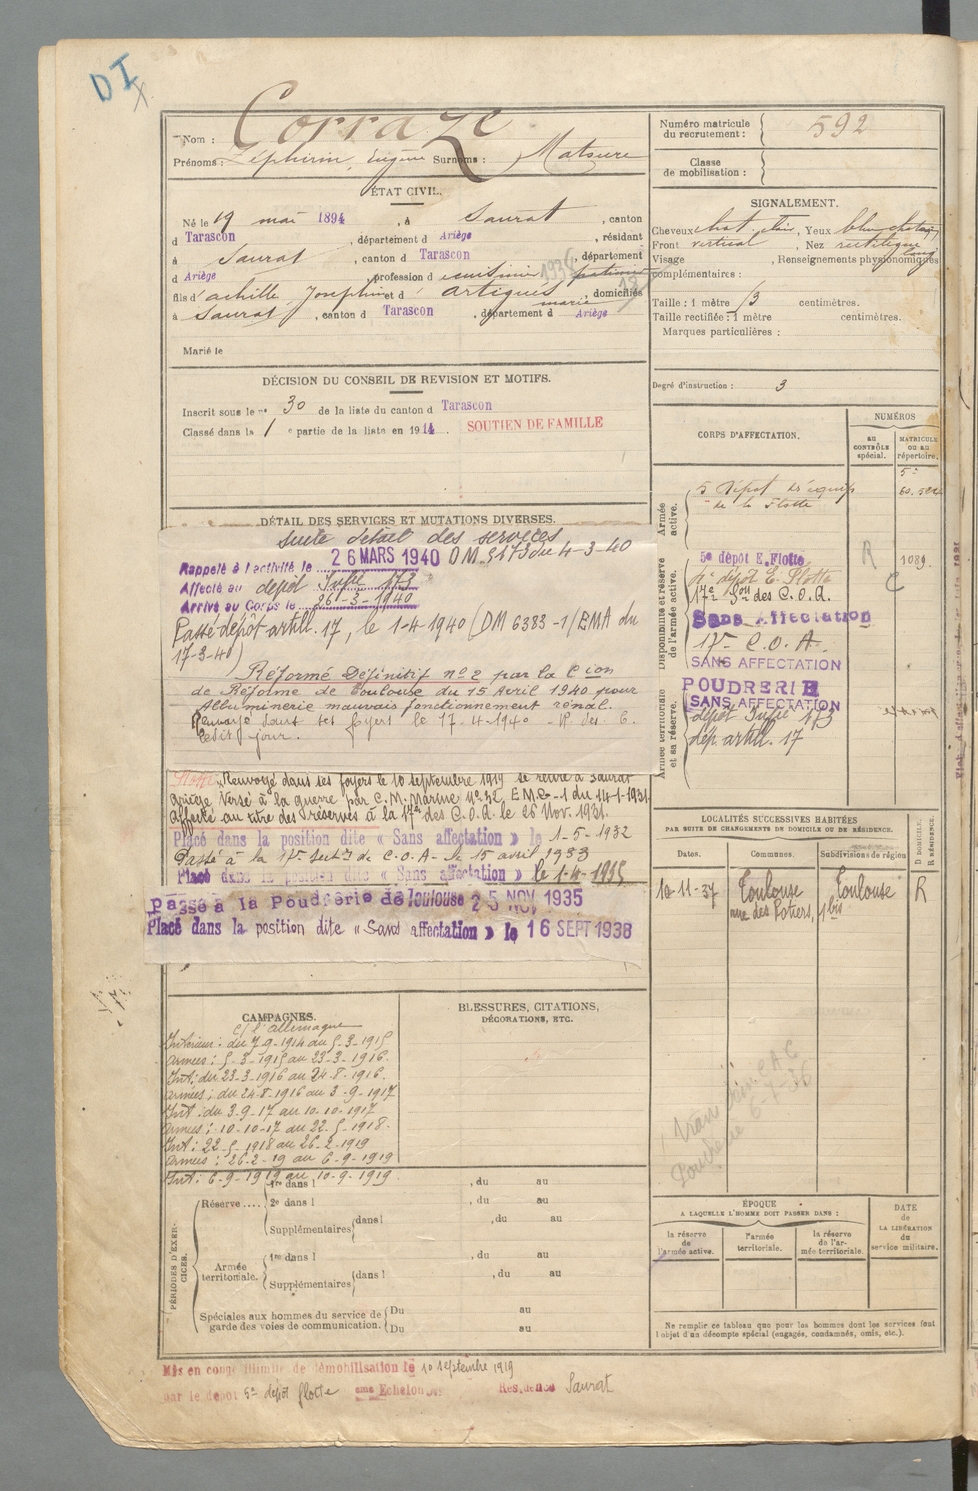 DI
Nom : Corraze
Prénoms : Zéphirin, Eugène Surnoms : Matsure
ÉTAT CIVIL.
Né le 19 mai 1894, à Saurat, canton
d Tarascon, département d Ariège, résidant
à Saurat, canton d Tarascon, département
d Ariège, profession d cuisinier
fils d'achille, Joseph et d' artigues marie, domiciliés
à Saurat, canton d Tarascon, département d Ariège
Marié le
DÉCISION DU CONSEIL DE REVISION ET MOTIFS.
Inscrit sous le n° 30 de la liste du canton d Tarascon
Classé dans la 1 e partie de la liste en 1914. SOUTIEN DE FAMILLE
DÉTAIL DES SERVICES ET MUTATIONS DIVERSES.
suite détail des services
Rappelé à l'activité le 26 MARS 1940 DM. 2173 du 4-3-40
Affecté au dépôt Infie 173
Arrivé au Corps le 26-3-1940
Passé dépôt artil. 17, le 1-4-1940 (DM 6383-1/EMA du
17-3-40)
Réformé Définitif n° 2 par la Cion
de Réforme de Toulouse du 15 Avril 1940 pour
Albuminerie mauvais fonctionnement rénal.
Renvoyé dans ses foyers le 17-4-1940 - R. des C.
Ledit jour.
Flotte Renvoyé dans ses foyers le 10 septembre 1919 se retire à Saurat
Ariège Versé à la guerre par C.M. Marine N° 32 EMG-1 du 14-1-1931
affecté au titre des réserves à la 17e des C.O.A. le 26 Nov. 1931.
Placé dans la position dite « Sans affectation » le 1-5-1932
Passé à la 17e Secton de C.O.A. le 15 avril 1933
Placé dans la position dite « Sans affectation » le 1-4-1935
Passé à la Poudrerie de Toulouse 25 NOV 1935
Placé dans la position dite « Sans affectation » le 16 SEPT 1938
CAMPAGNES.
c/ l'allemagne
Intérieur : du 7-9-1914 au 5-3-1915
armées : 5-3-1915 au 23-3-1916.
Int : du 23-3-1916 au 24-8-1916.
armées : du 24-8-1916 au 3-9-1917
Int : du 3-9-17 au 10-10-1917
armées : 10-10-17 au 22-5-1918.
Int : 22-5-1918 au 26-2-1919
armées : 26-2-19 au 6-9-1919
Int : 6-9-1919 au 10-9-1919.
BLESSURES, CITATIONS,
DÉCORATIONS, ETC.
PÉRIODES D'EXERCICES.
Réserve....
1re dans l , du au
2e dans l , du au
Supplémentaires dans l , du au
Armée territoriale.
1re dans l , du au
Supplémentaires dans l , du au
Spéciales aux hommes du service de
garde des voies de communication.
Du au
Du au
Mis en congé illimité de démobilisation le 10 septembre 1919
par le dépôt 5e dépôt flotte eme Echelon Résidence Saurat
Numéro matricule
du recrutement : 592
Classe
de mobilisation :
SIGNALEMENT.
Cheveux chat. clair, Yeux bleu
Front vertical, Nez rectiligne
Visage long, Renseignements physionomiques
complémentaires :
Taille : 1 mètre 73 centimètres.
Taille rectifiée : 1 mètre centimètres.
Marques particulières :
Degré d'instruction : 3
CORPS D'AFFECTATION.
NUMÉROS
AU CONTRÔLE spécial.
MATRICULE OU AU répertoire.
Armée active.
5 Dépôt des équip
de la Flotte
Disponibilité et réserve de l'armée active.
5e dépôt E. Flotte 1089
5e dépôt E. Flotte
17e Son des C.O.A.
R
C
Sans Affectation
17e C.O.A.
SANS AFFECTATION
Armée territoriale et sa réserve.
POUDRERIE
SANS AFFECTATION
dépôt Infie 173
dép. artil. 17
LOCALITÉS SUCCESSIVES HABITÉES
PAR SUITE DE CHANGEMENTS DE DOMICILE OU DE RÉSIDENCE.
Dates. Communes. Subdivisions de région
D DOMICILE.
R RÉSIDENCE.
10-11-37 Toulouse Toulouse R
rue des Potiers, 1 bis
ÉPOQUE
A LAQUELLE L'HOMME DOIT PASSER DANS :
la réserve de l'armée active.
l'armée territoriale.
la réserve de l'armée territoriale.
DATE
de
LA LIBÉRATION
du
service militaire.
Ne remplir ce tableau que pour les hommes dont les services font
l'objet d'un décompte spécial (engagés, condamnés, omis, etc.).